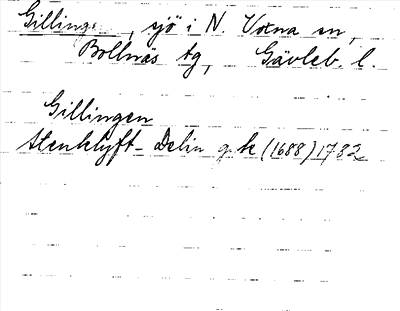 Gillingen, sjö i N. Voxna sn,
Bollnäs tg, Gävleb. l.
Gillingen
Stenklyft-Delin gk (1688) 1782